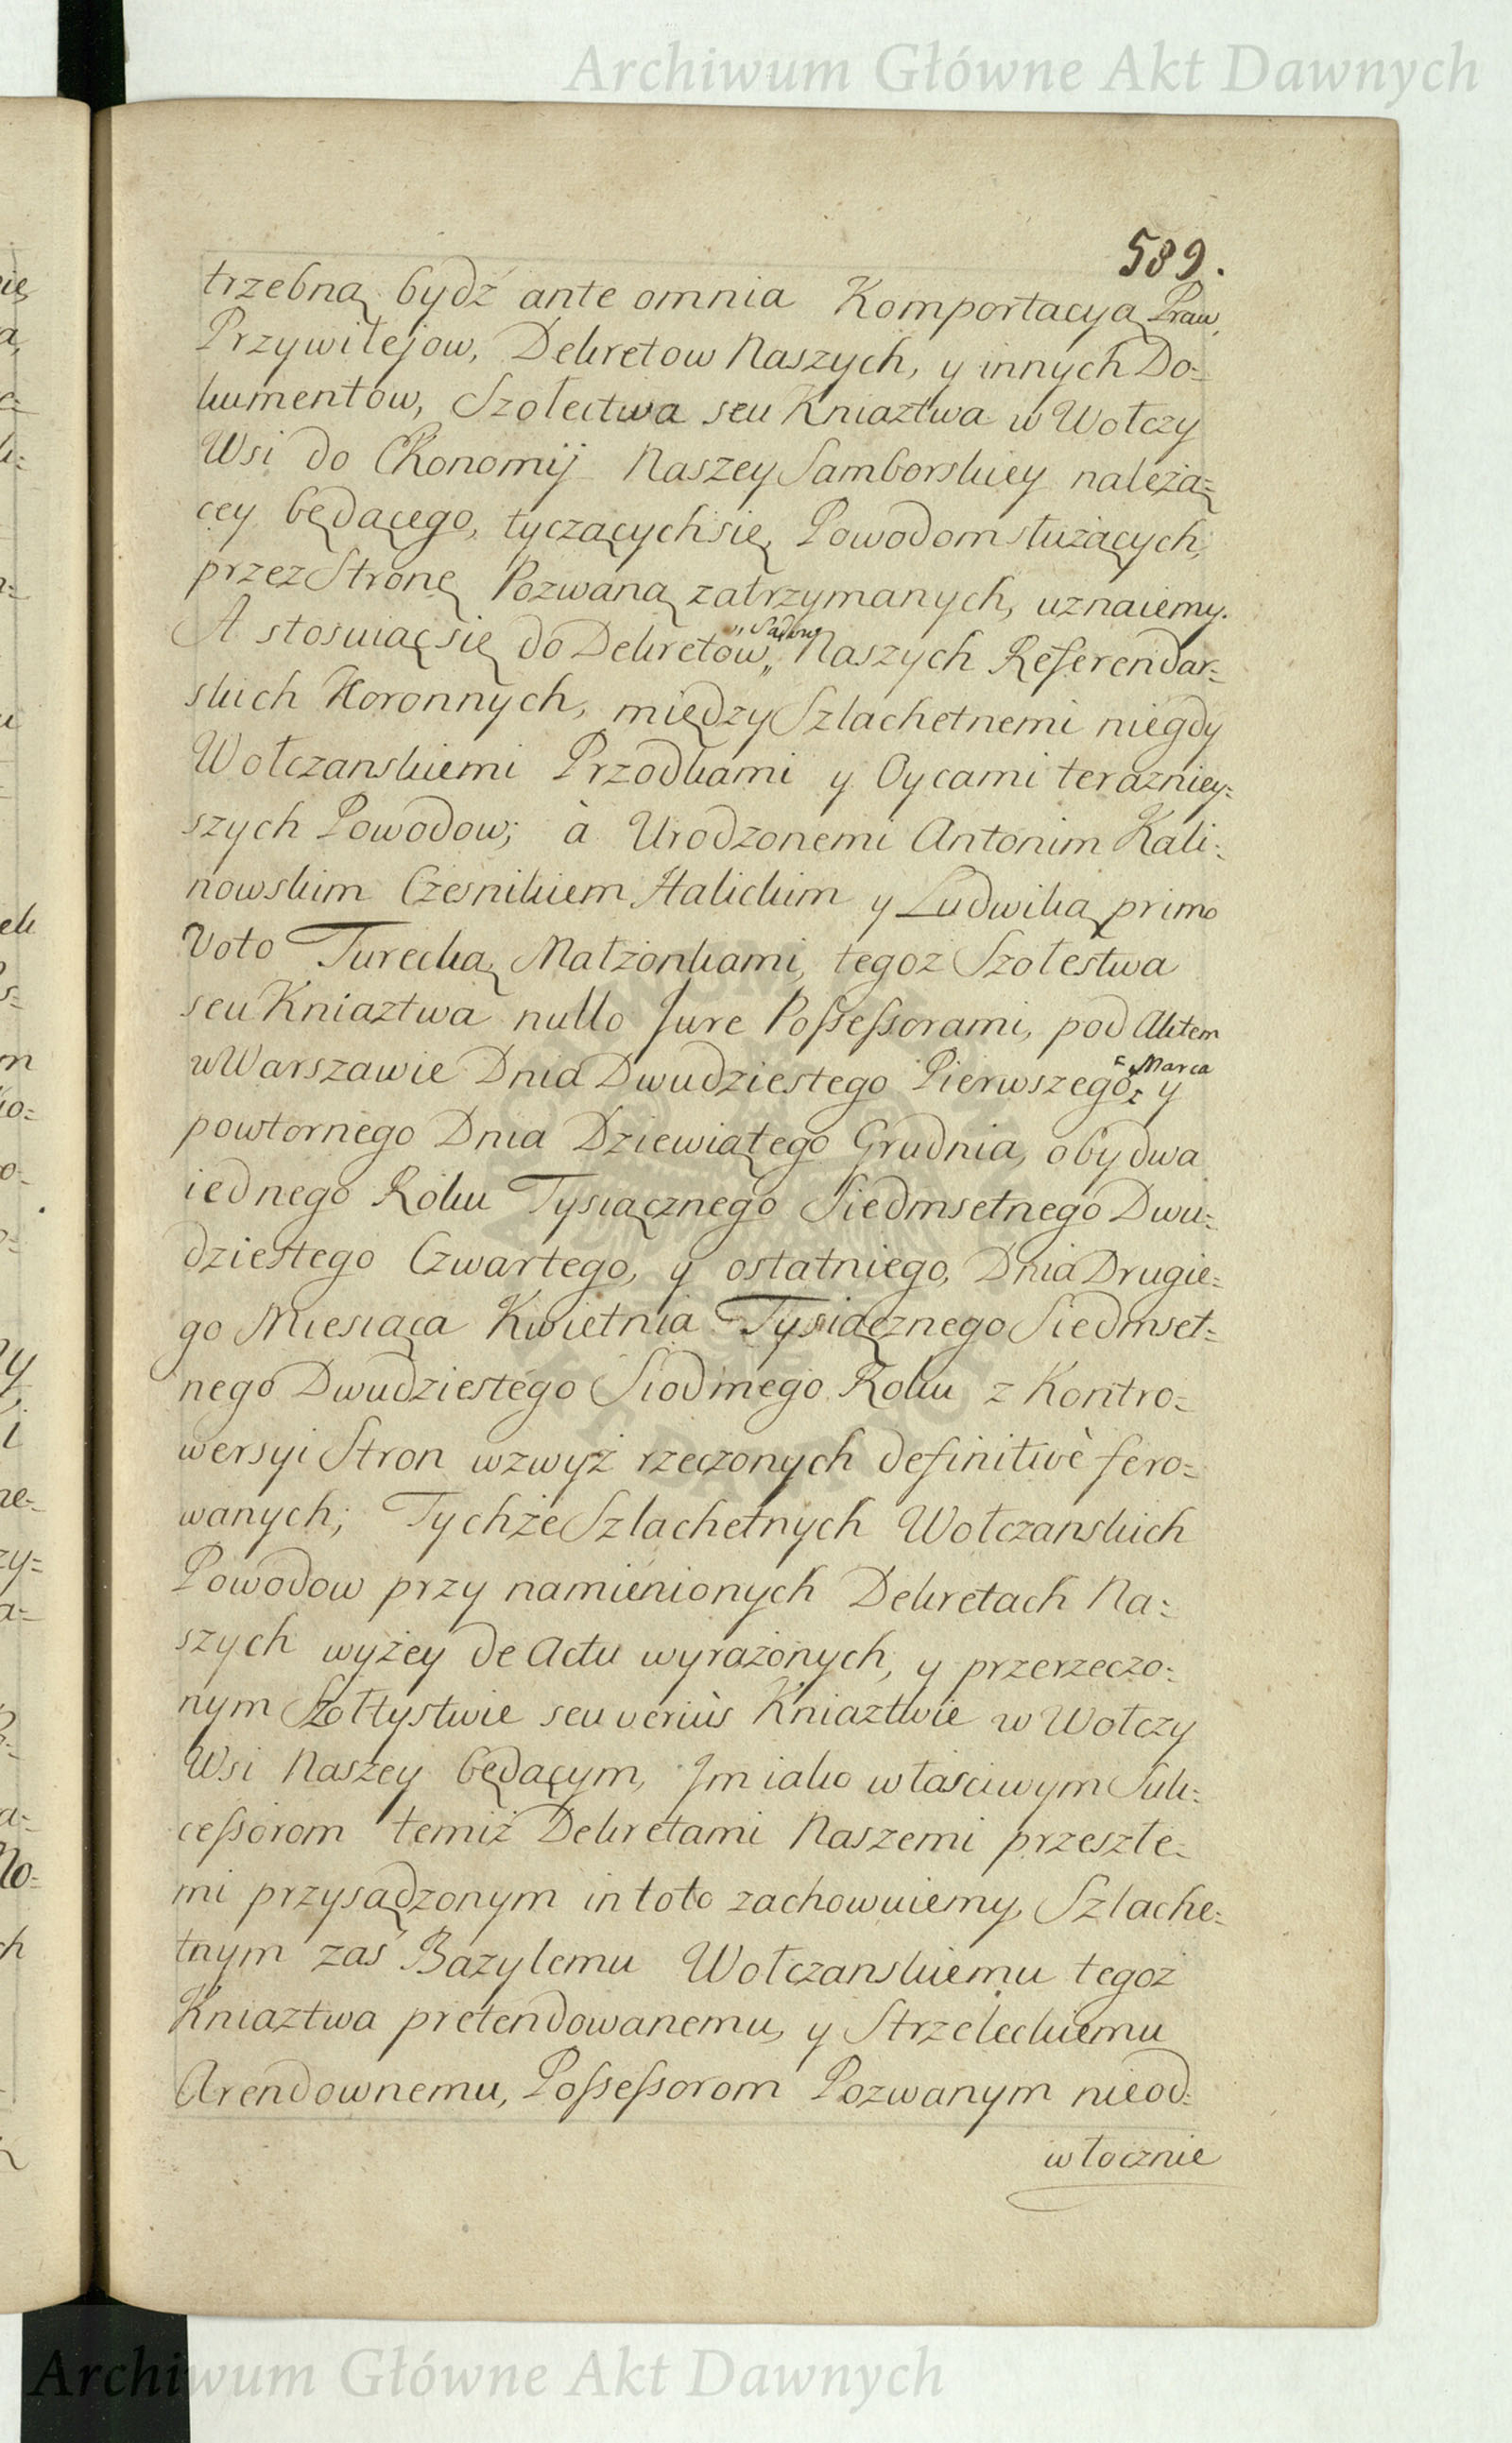 Archiwum Główne Akt Dawnych
589.
trzebną bydź ante omnia Komportacyą Praw,
Przywilejow, Dekretow Naszych, y innych Do=
kumentow, Szołectwa seu Kniaztwa w Wołczy
Wsi do Ekonomij Naszey Samborskiey należą=
cey będącego, tyczącychsię, Powodom służących,
przez Stronę Pozwaną zatrzymanych, uznaiemy.
A stosuiąc się do Dekretow „Sadow„ Naszych Referendar=
skich Koronnych, między Szlachetnemi niegdy
Wołczanskiemi Przodkami y Oycami terazniey=
szych Powodow; à Urodzonemi Antonim Kali=
nowskim Czesnikiem Halickim y Ludwiką primo
Voto Turecką Małżonkami, tegoż Szołestwa
seu Kniaztwa nullo Jure Poſseſsorami, pod Aktem
w Warszawie Dnia Dwudziestego Pierwszego Marca y
powtornego Dnia Dziewiątego Grudnia, obydwa
iednego Roku Tysiącznego Siedmsetnego Dwu=
dziestego Czwartego, y ostatniego, Dnia Drugie=
go Miesiąca Kwietnia Tysiącznego Siedmset=
nego Dwudziestego Siodmego Roku z Kontro=
wersyi Stron wzwyż rzeczonych definitivè fero=
wanych; Tychże Szlachetnych Wołczanskich
Powodow przy namienionych Dekretach Na=
szych wyżey de Actu wyrażonych, y przerzeczo=
nym Szołtystwie seu veriùs Kniaztwie w Wołczy
Wsi Naszey będącym, Jm iako właściwym Suk=
ceſsorom temiż Dekretami Naszemi przeszłe=
mi przysądzonym in toto zachowuiemy, Szlache=
tnym zaś Bazylemu Wołczanskiemu tegoż
Kniaztwa pretendowanemu, y Strzeleckiemu
Arendownemu, Poſseſsorom Pozwanym nieod=
włocznie
Archiwum Główne Akt Dawnych